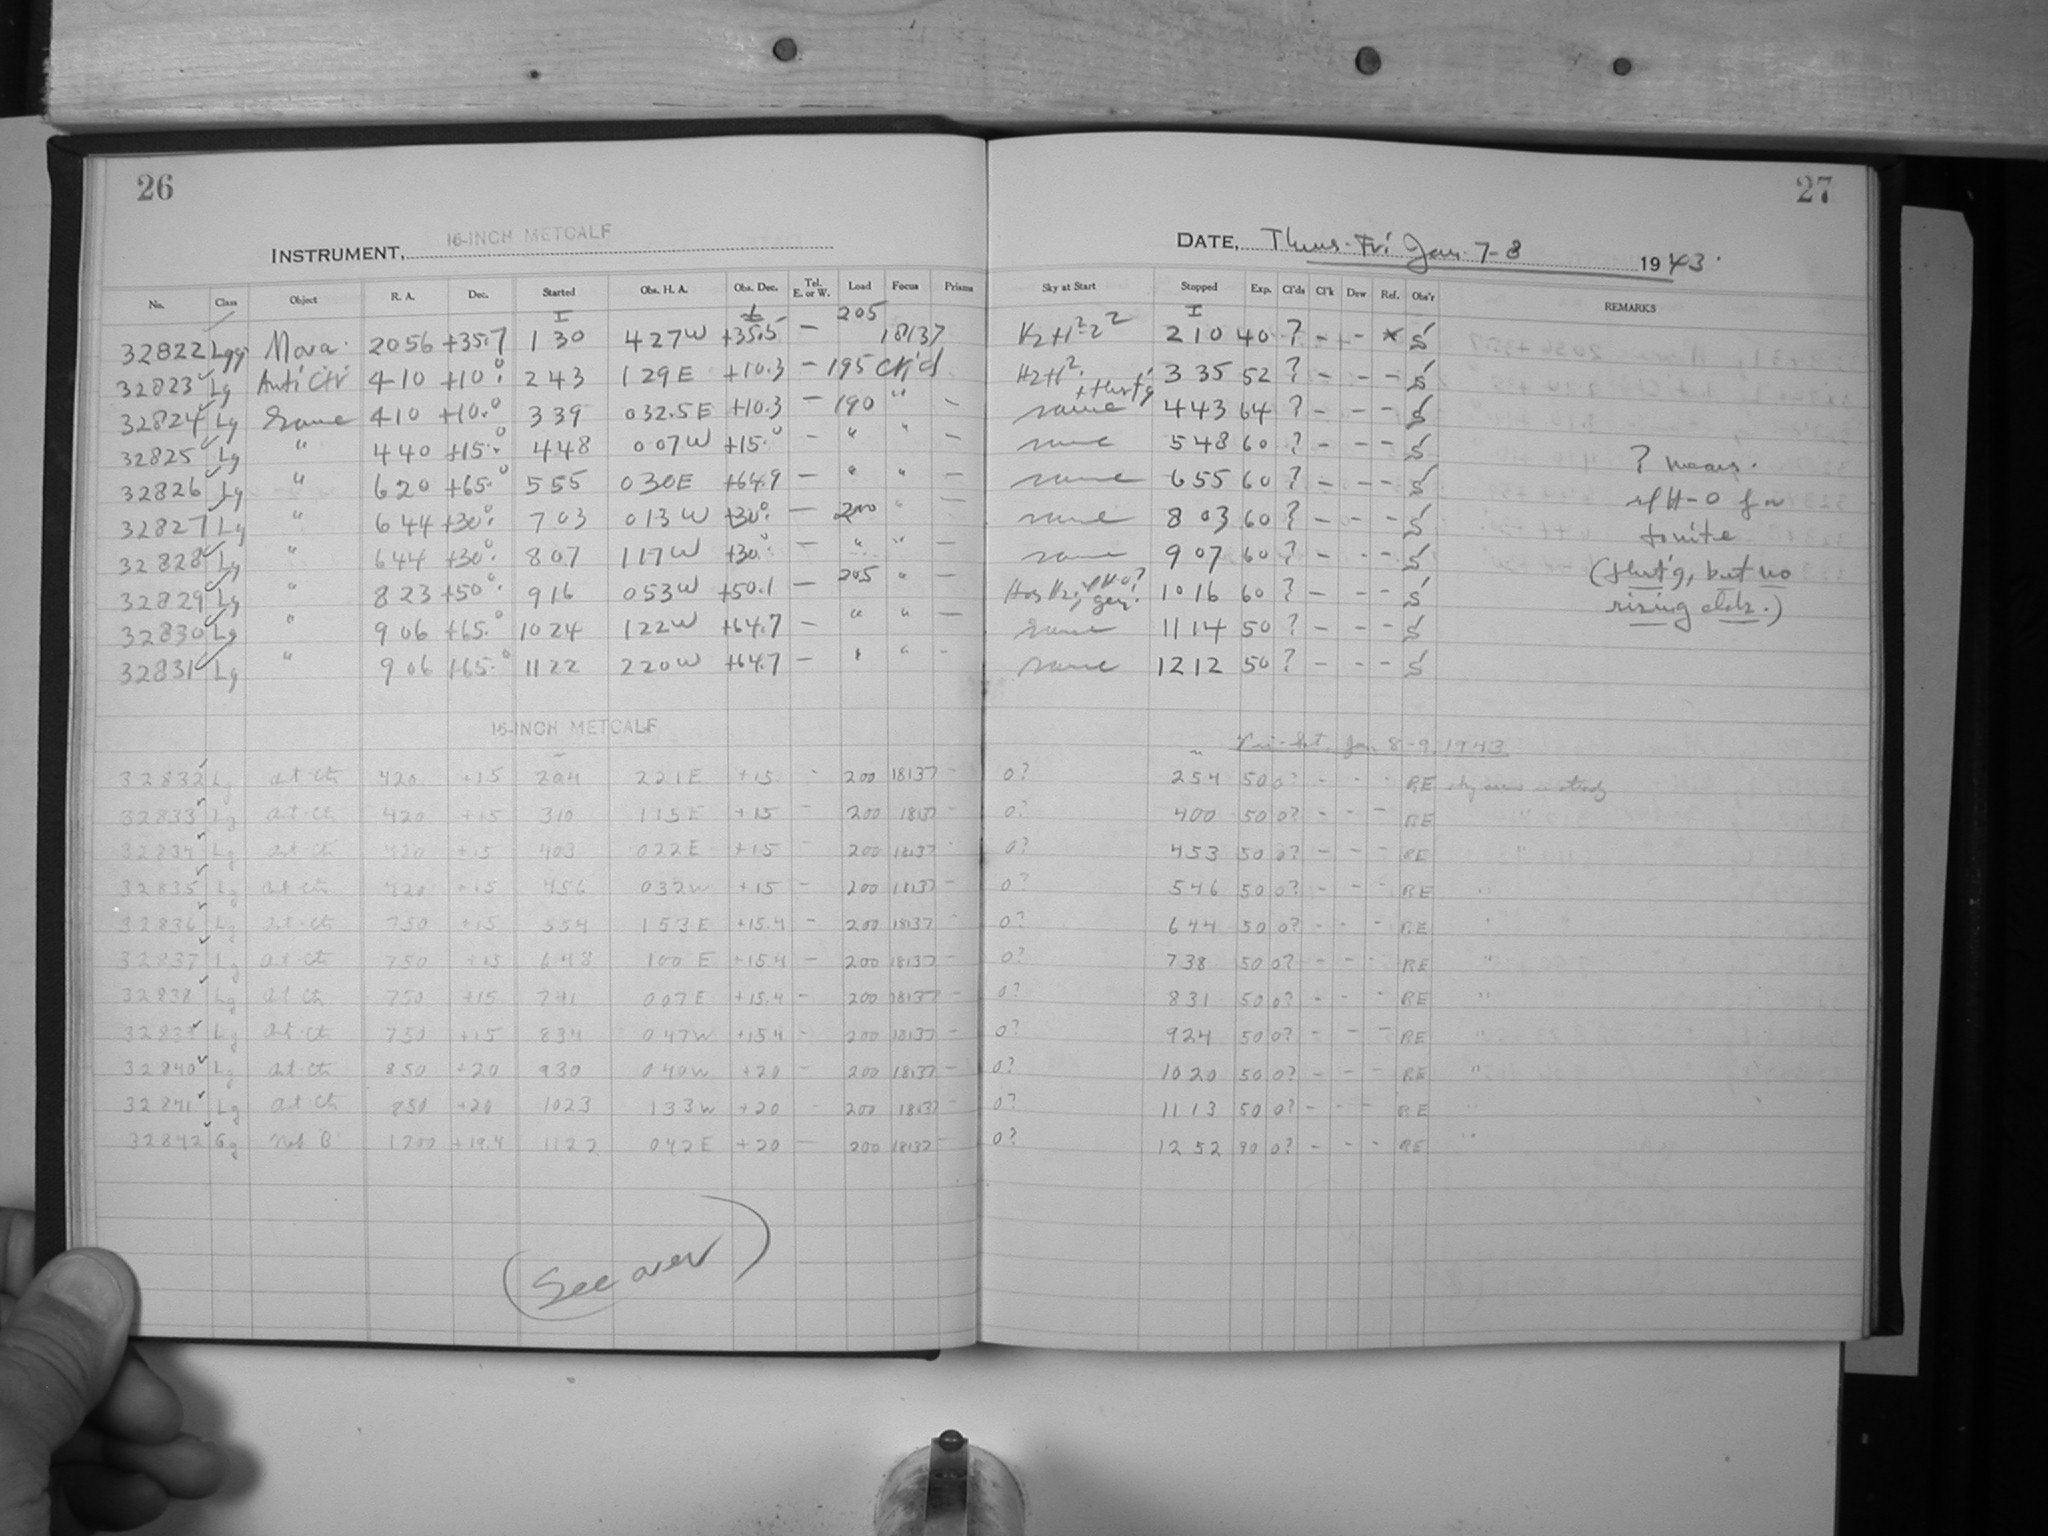 26
27
INSTRUMENT, 16-INCH METCALF
DATE, Thurs-Fri Jan. 7-8 1943.
No. Class Object R. A. Dec. Started Obs. H. A. Obs. Dec. Tel. E. or W. Load Focus Prisms Sky at Start Stopped Exp. Cl'ds Cl'k Dew Ref. Obs'r REMARKS
32822 Nova 2056 +35.7 130 427W +35.5 – 205 18137 210 40 ? – – * S
32823 Lg Anti Ctr 410 +10.° 243 129E +10.3 – 195 ck'd 335 52 ? – – – S
32824 Lg Same 410 +10.° 339 032.5E +10.3 – 190 " – same 443 64 ? – – – S
32825 Lg " 440 +15.° 448 007W +15.° – " " – same 548 60 ? – – – S
32826 Lg " 620 +65.° 555 030E +64.9 – " " – same 655 60 ? – – – S ? means
32827 Lg " 644 +30.° 703 013W +30.° – 200 " – same 803 60 ? – – – S
32828 Lg " 644 +30.° 807 117W +30.° – " " – same 907 60 ? – – – S tonite
32829 Lg " 823 +50.° 916 053W +50.1 – 205 " – 1016 60 ? – – – S but no
32830 Lg " 906 +65.° 1024 122W +64.7 – " " – same 1114 50 ? – – – S rising clds.)
32831 Lg " 906 +65.° 1122 220W +64.7 – " " – same 1212 50 ? – – – S
16-INCH METCALF
Fri-Sat. Jan 8-9, 1943
32832 Lg ant ctr 420 +15 204 221E +15 – 200 18137 – 0? 254 50 0? – – – RE
32833 Lg ant ctr 420 +15 310 115E +15 – 200 18137 – 0? 400 50 0? – – – RE
32834 Lg ant ctr 420 +15 403 022E +15 – 200 18137 0? 453 50 0? – – – RE "
32835 Lg ant ctr 420 +15 456 032W +15 – 200 18137 – 0? 546 50 0? – – – RE "
32836 Lg ant ctr 750 +15 554 153E +15.4 – 200 18137 – 0? 644 50 0? – – – RE "
32837 Lg ant ctr 750 +15 648 100E +15.4 – 200 18137 – 0? 738 50 0? – – – RE "
32838 Lg ant ctr 750 +15 741 007E +15.4 – 200 18137 – 0? 831 50 0? – – – RE "
32839 Lg ant ctr 750 +15 834 047W +15.4 – 200 18137 – 0? 924 50 0? – – – RE "
32840 Lg ant ctr 850 +20 930 040W +20 – 200 18137 – 0? 1020 50 0? – – – RE "
32841 Lg ant ctr 850 +20 1023 133W +20 – 200 18137 – 0? 1113 50 0? – – – RE "
32842 Gg 1200 +19.4 1122 042E +20 – 200 18137 – 0? 1252 90 0? – – – RE "
(See over)